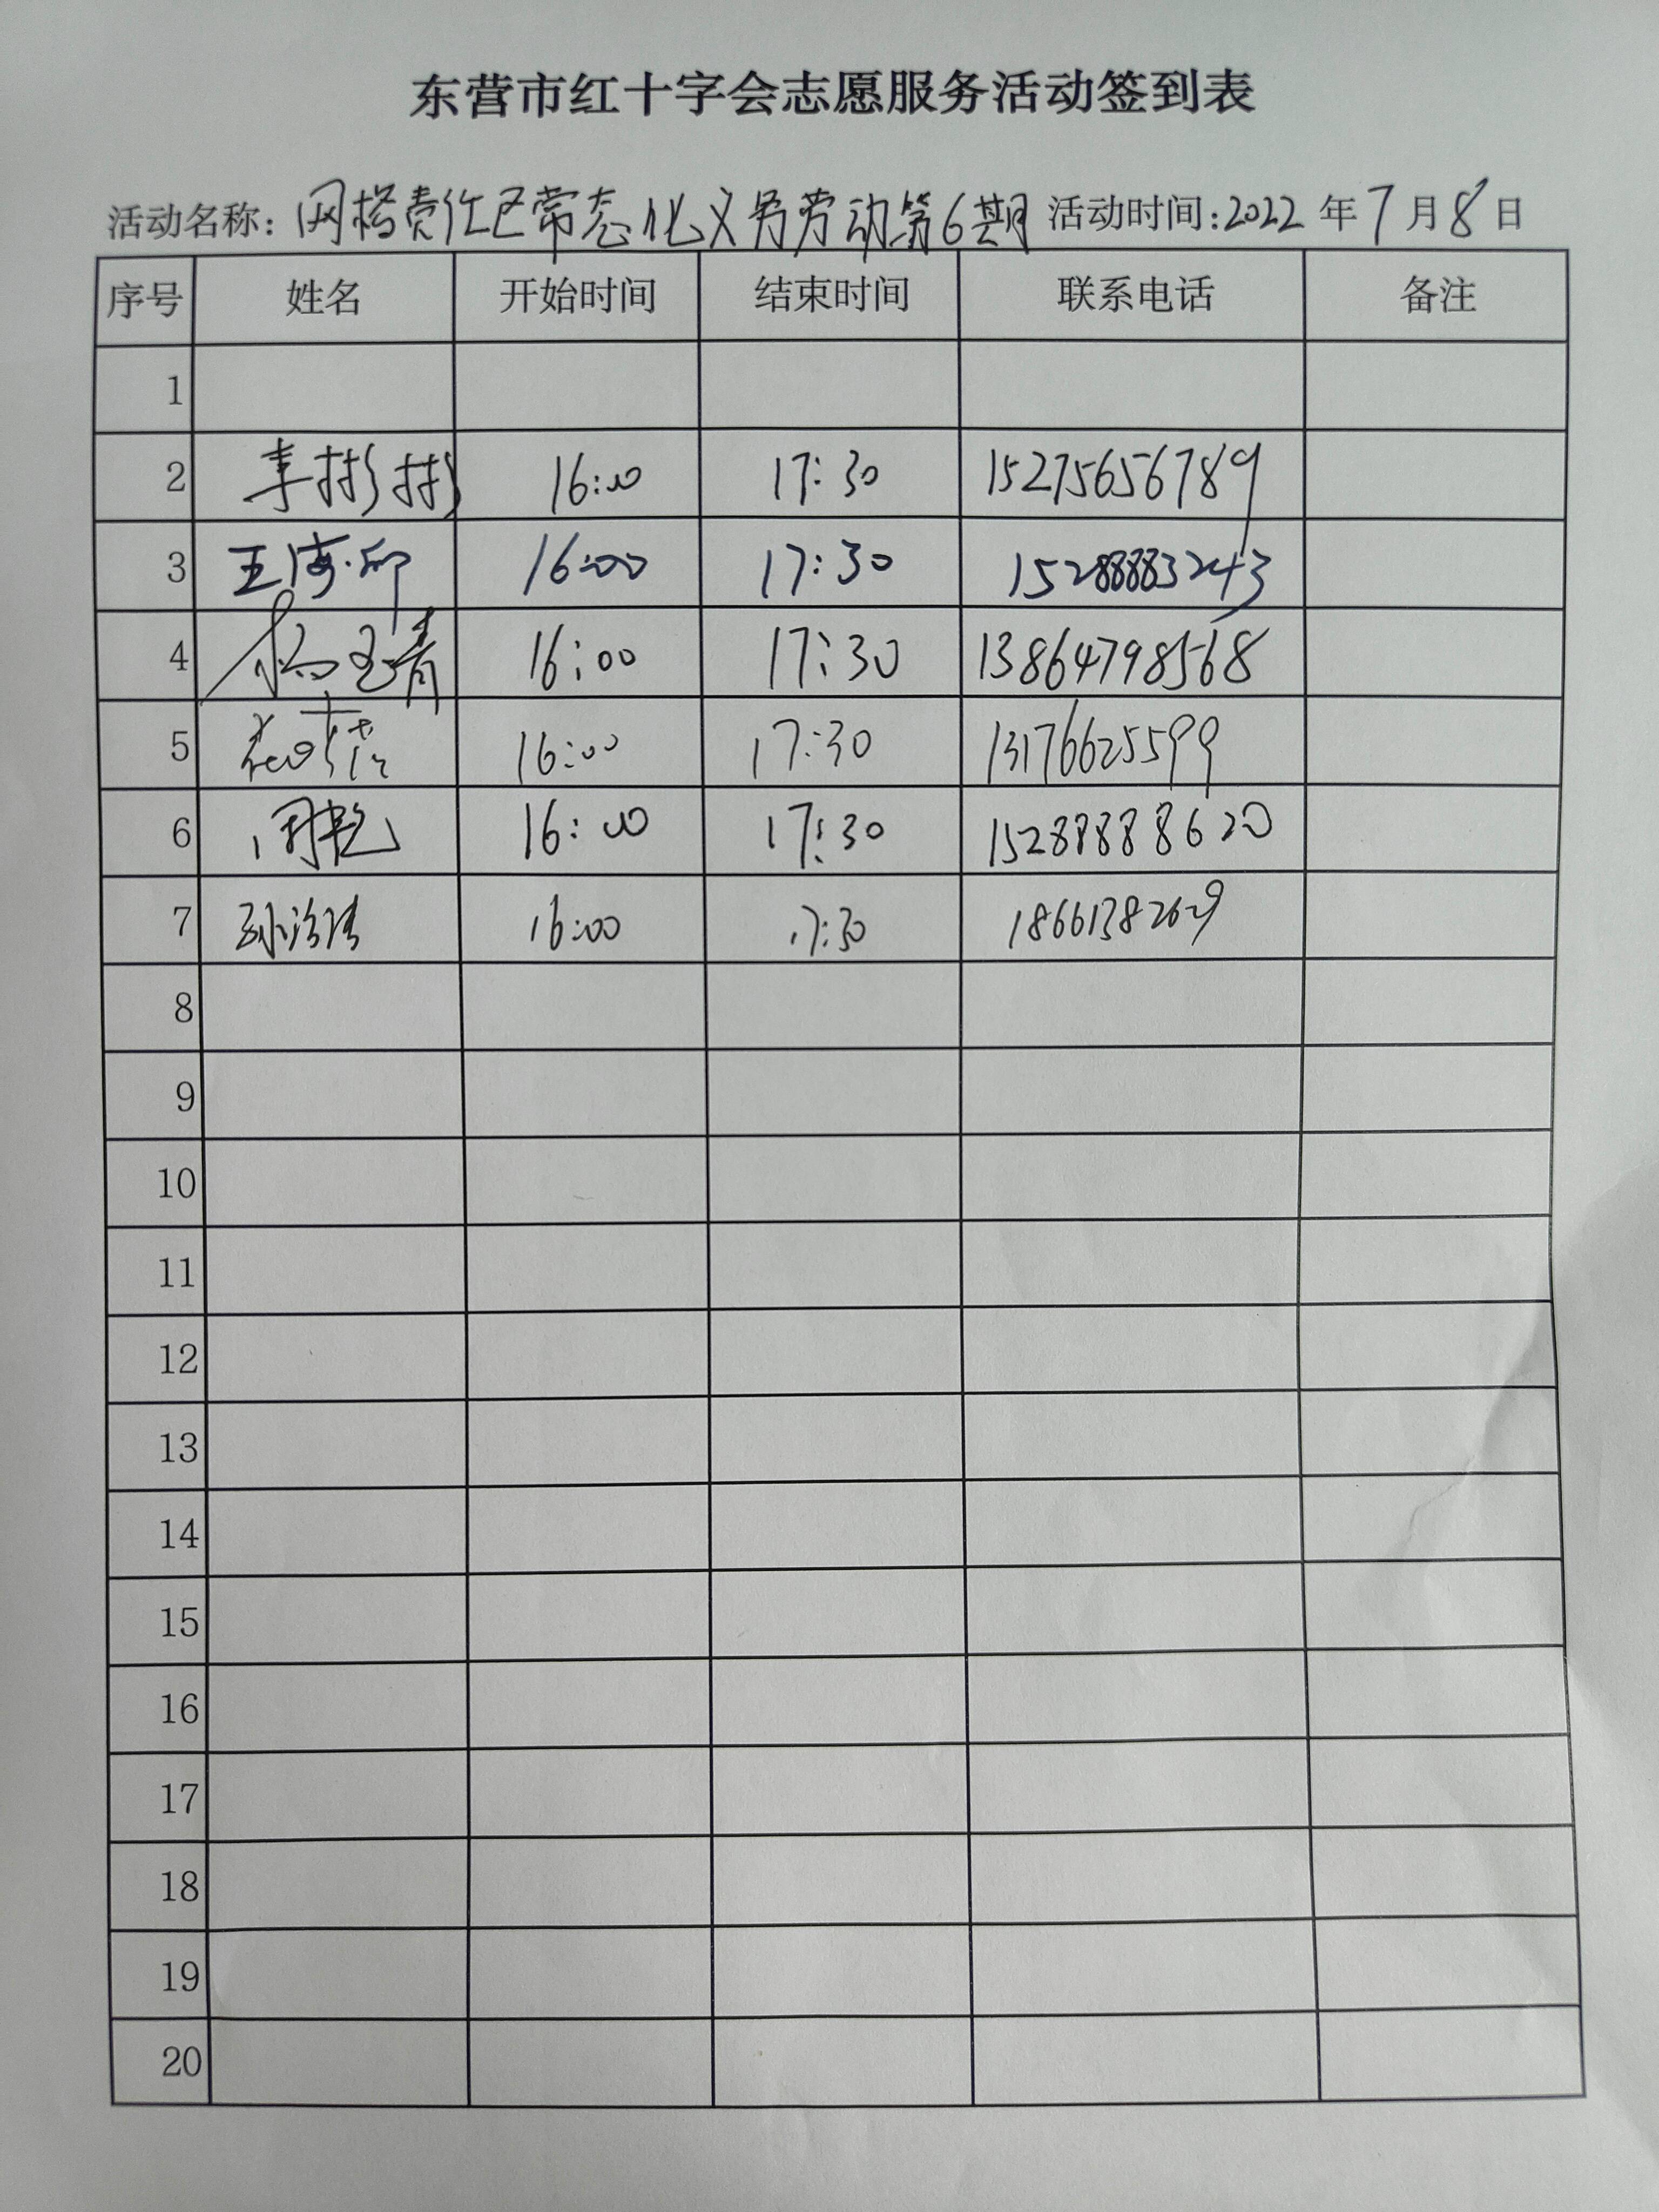 东营市红十字会志愿服务活动签到表
活动名称: 网格责任区常态化义务劳动第6期 活动时间:2022 年 7 月 8 日
序号 姓名 开始时间 结束时间 联系电话 备注
1
2 李彬彬 16:00 17:30 15275656789
3 王海 16:00 17:30 15288883243
4 杨玉青 16:00 17:30 13864798568
5 16:00 17:30 13176625599
6 周艳 16:00 17:30 15288888620
7 孙 16:00 17:30 18661382629
8
9
10
11
12
13
14
15
16
17
18
19
20